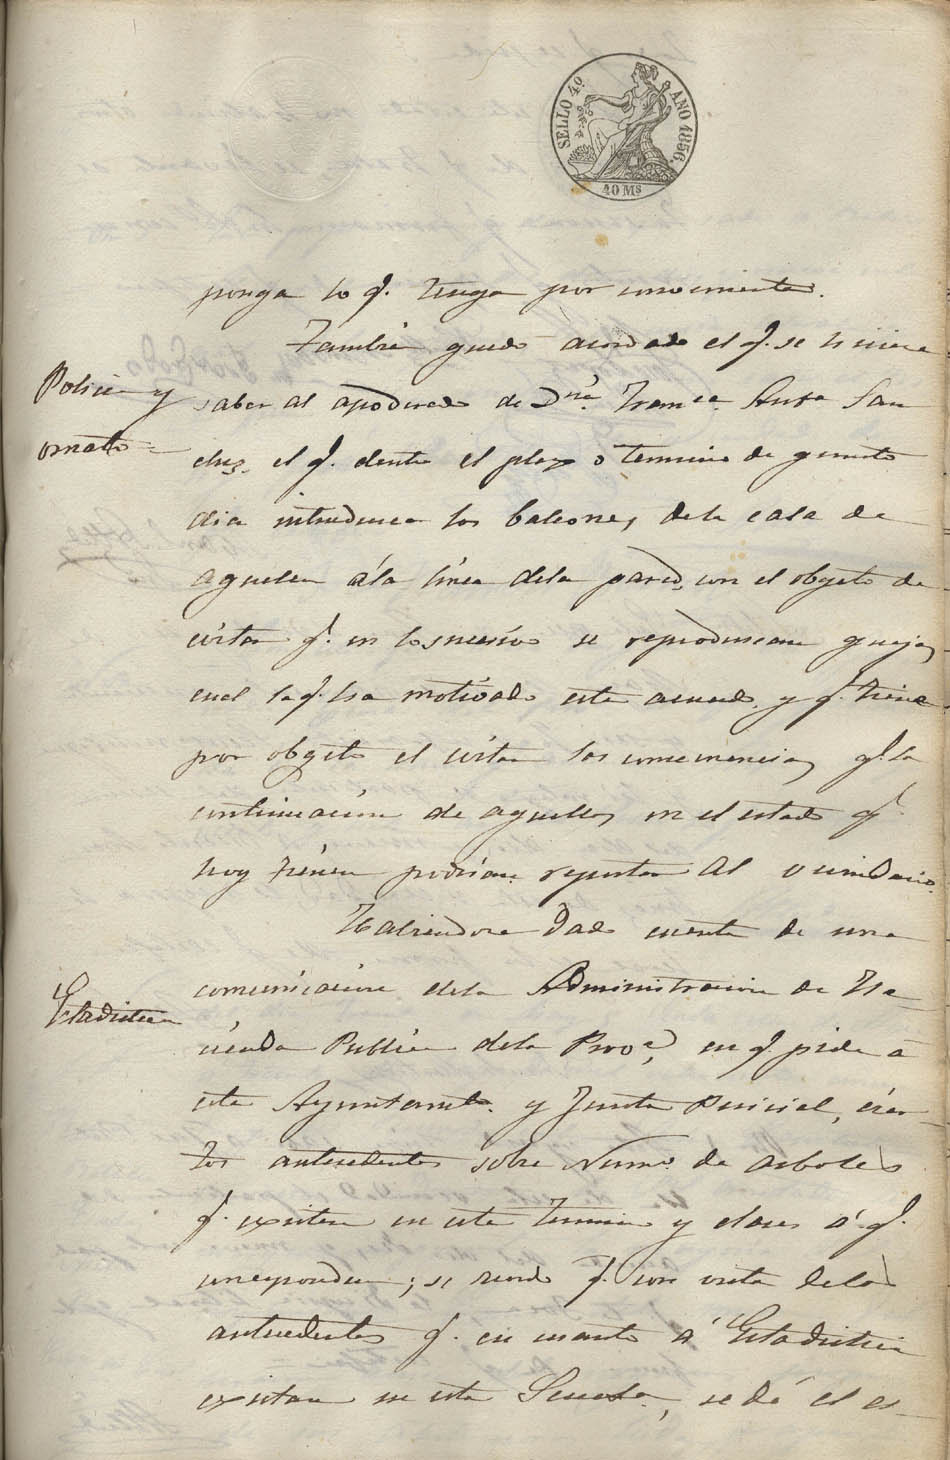 SELLO 4º. AÑO 1856.
40 Ms
ponga lo q.e tenga por conveniente.
Tambien quedó acordado el q.e se hiciera
Policia y
ornato =
saber al apoderado de Dña. Franca. Ansa San
el q.e dentro el plazo o termino de quinto
dia introduzca los balcones, dela casa de
aquella á la línea dela pared, con el objeto de
evitar q.e en lo sucesivo se reproduzcan quejas,
cual la q.e ha motivado este acuerdo, y q.e tiene
por objeto el evitar las consecuencias q.e la
continuacion de aquellos en el estado q.e
hoy tienen podrian reportar al vecindario.
Habiendose dado cuenta de una
Estadistica
comunicacion dela Administracion de Ha-
cienda Publica dela Prova, en q.e pide á
este Ayuntamto. y Junta Pericial, cier-
tos antecedentes sobre Numo. de arboles
q.e existen en este Termino y clases á q.e
corresponden; se acordó q.e con vista delos
antecedentes q.e en cuanto á Estadistica
existan en esta Secreta, se dé el es-